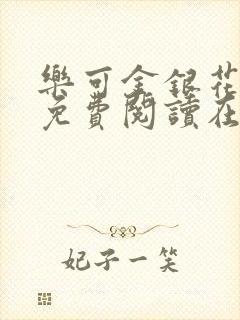 樂可金銀花
免費閱讀在
妃子一笑